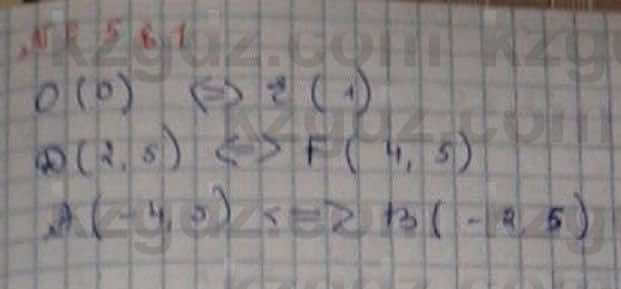 O(0) <=> E(1)
D(2,5) <=> F(4,5)
A(-4,5) <=> B(-2,5)
kzgdz.com